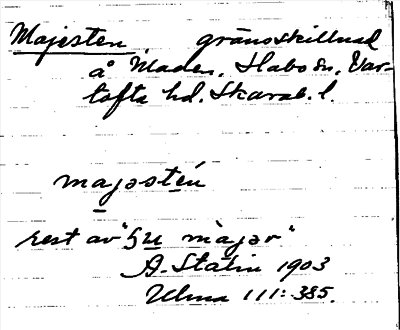 Majesten, gränsskillnad
å Maden, Habo sn, Var-
tofta hd. Skarab. l.
majəstén
rest av "ʒu màjər"
A. Stalin 1903
Ulma 111:385.